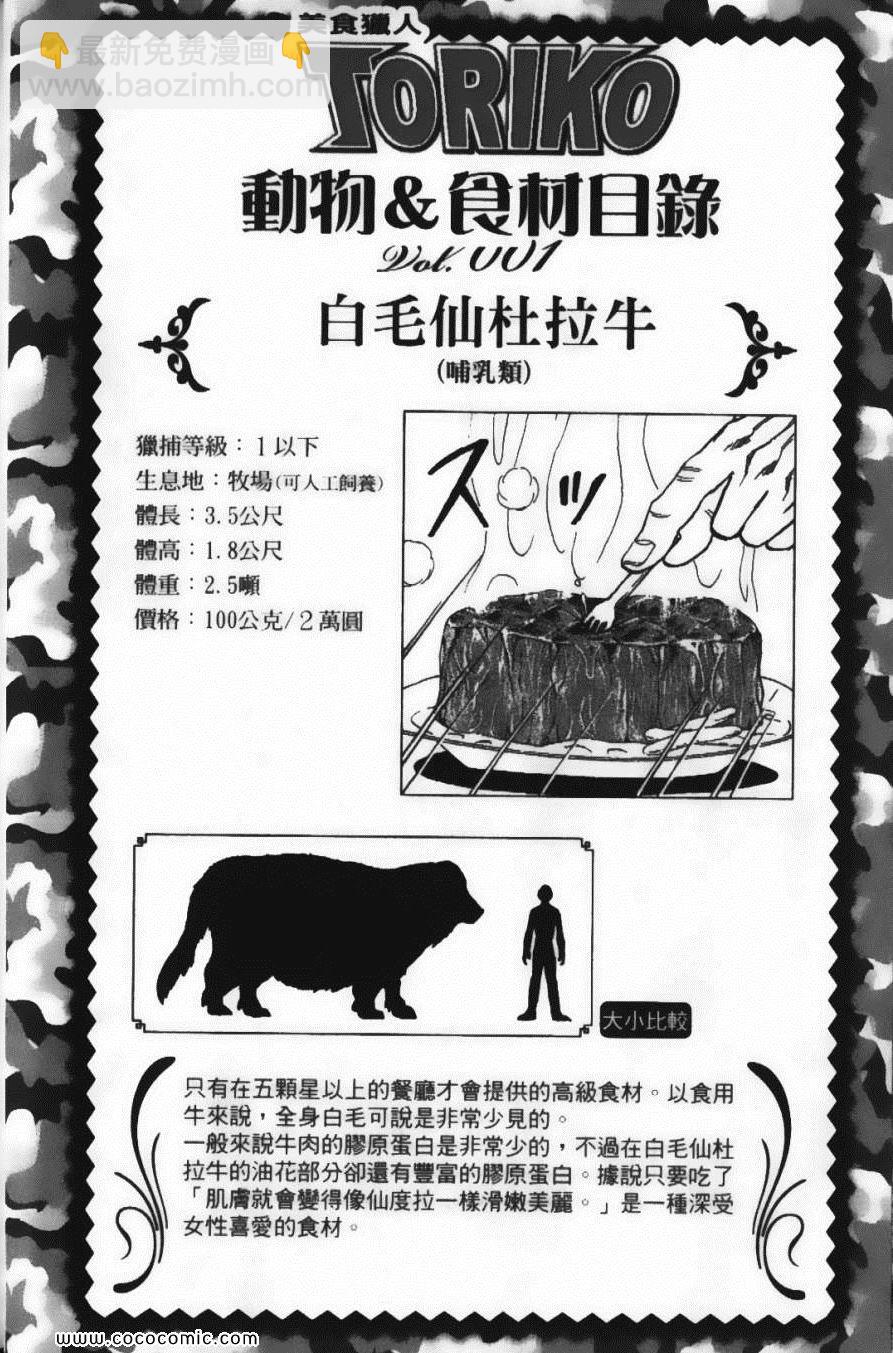 美食獵人
👇最新免费漫画👇
www.baozimh.com
TORIKO
動物&食材目錄
Vol.001
白毛仙杜拉牛
(哺乳類)
獵捕等級：1以下
生息地：牧場(可人工飼養)
體長：3.5公尺
體高：1.8公尺
體重：2.5噸
價格：100公克/2萬圓
スッ
大小比較
只有在五顆星以上的餐廳才會提供的高級食材。以食用
牛來說，全身白毛可說是非常少見的。
一般來說牛肉的膠原蛋白是非常少的，不過在白毛仙杜
拉牛的油花部分卻還有豐富的膠原蛋白。據說只要吃了
「肌膚就會變得像仙度拉一樣滑嫩美麗。」是一種深受
女性喜愛的食材。
www.cococomic.com